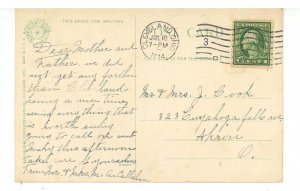 THIS SPACE FOR WRITING
POST CARD
CLEVELAND, OHIO
7-PM
1914
3
Dear Mother and
Father, we did
not get any farther
than C'E'land
having a nice time
seeing every thing
is worth seeing
going to call on
Mary this afternoon
take care of yourselves
from Mr. & Mrs. M.
Mr & Mrs. J. Cook
323 Cuyahoga falls ave
Akron
O.